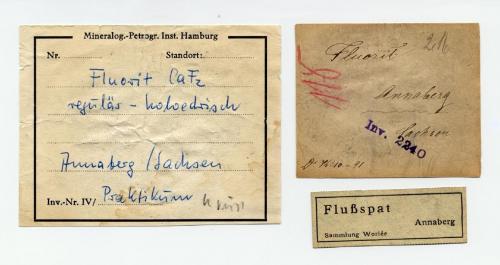 Mineralog.-Petrogr. Inst. Hamburg
Nr. Standort:
Fluorit CaF2
regulär - holoedrisch
Annaberg / Sachsen
Praktikum
Inv.-Nr. IV/
Fluorit
Annaberg
Sachsen
Inv. 2240
Flußspat
Annaberg
Sammlung Worlée